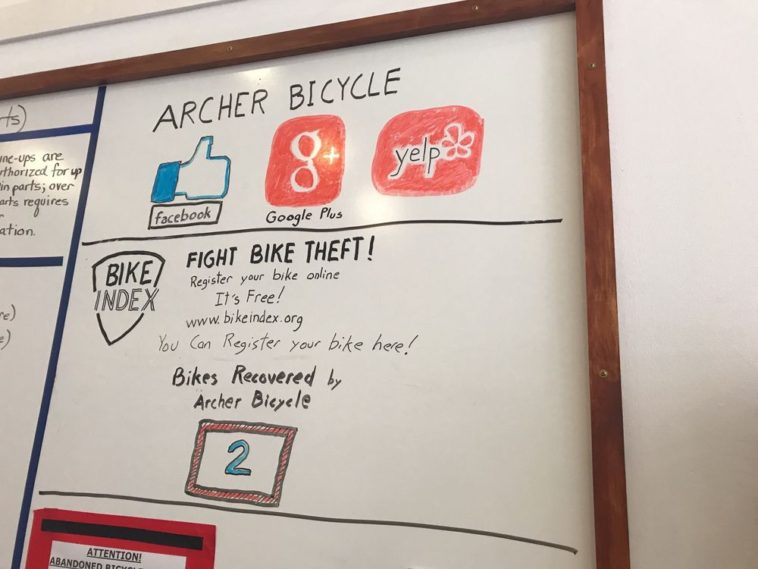 ts)
une-ups are
thorized for up
in parts; over
arts requires
ation.
e)
ARCHER BICYCLE
facebook
g+
Google Plus
yelp
BIKE
INDEX
FIGHT BIKE THEFT!
Register your bike online
It's Free!
www.bikeindex.org
You Can Register your bike here!
Bikes Recovered by
Archer Bicycle
2
ATTENTION!